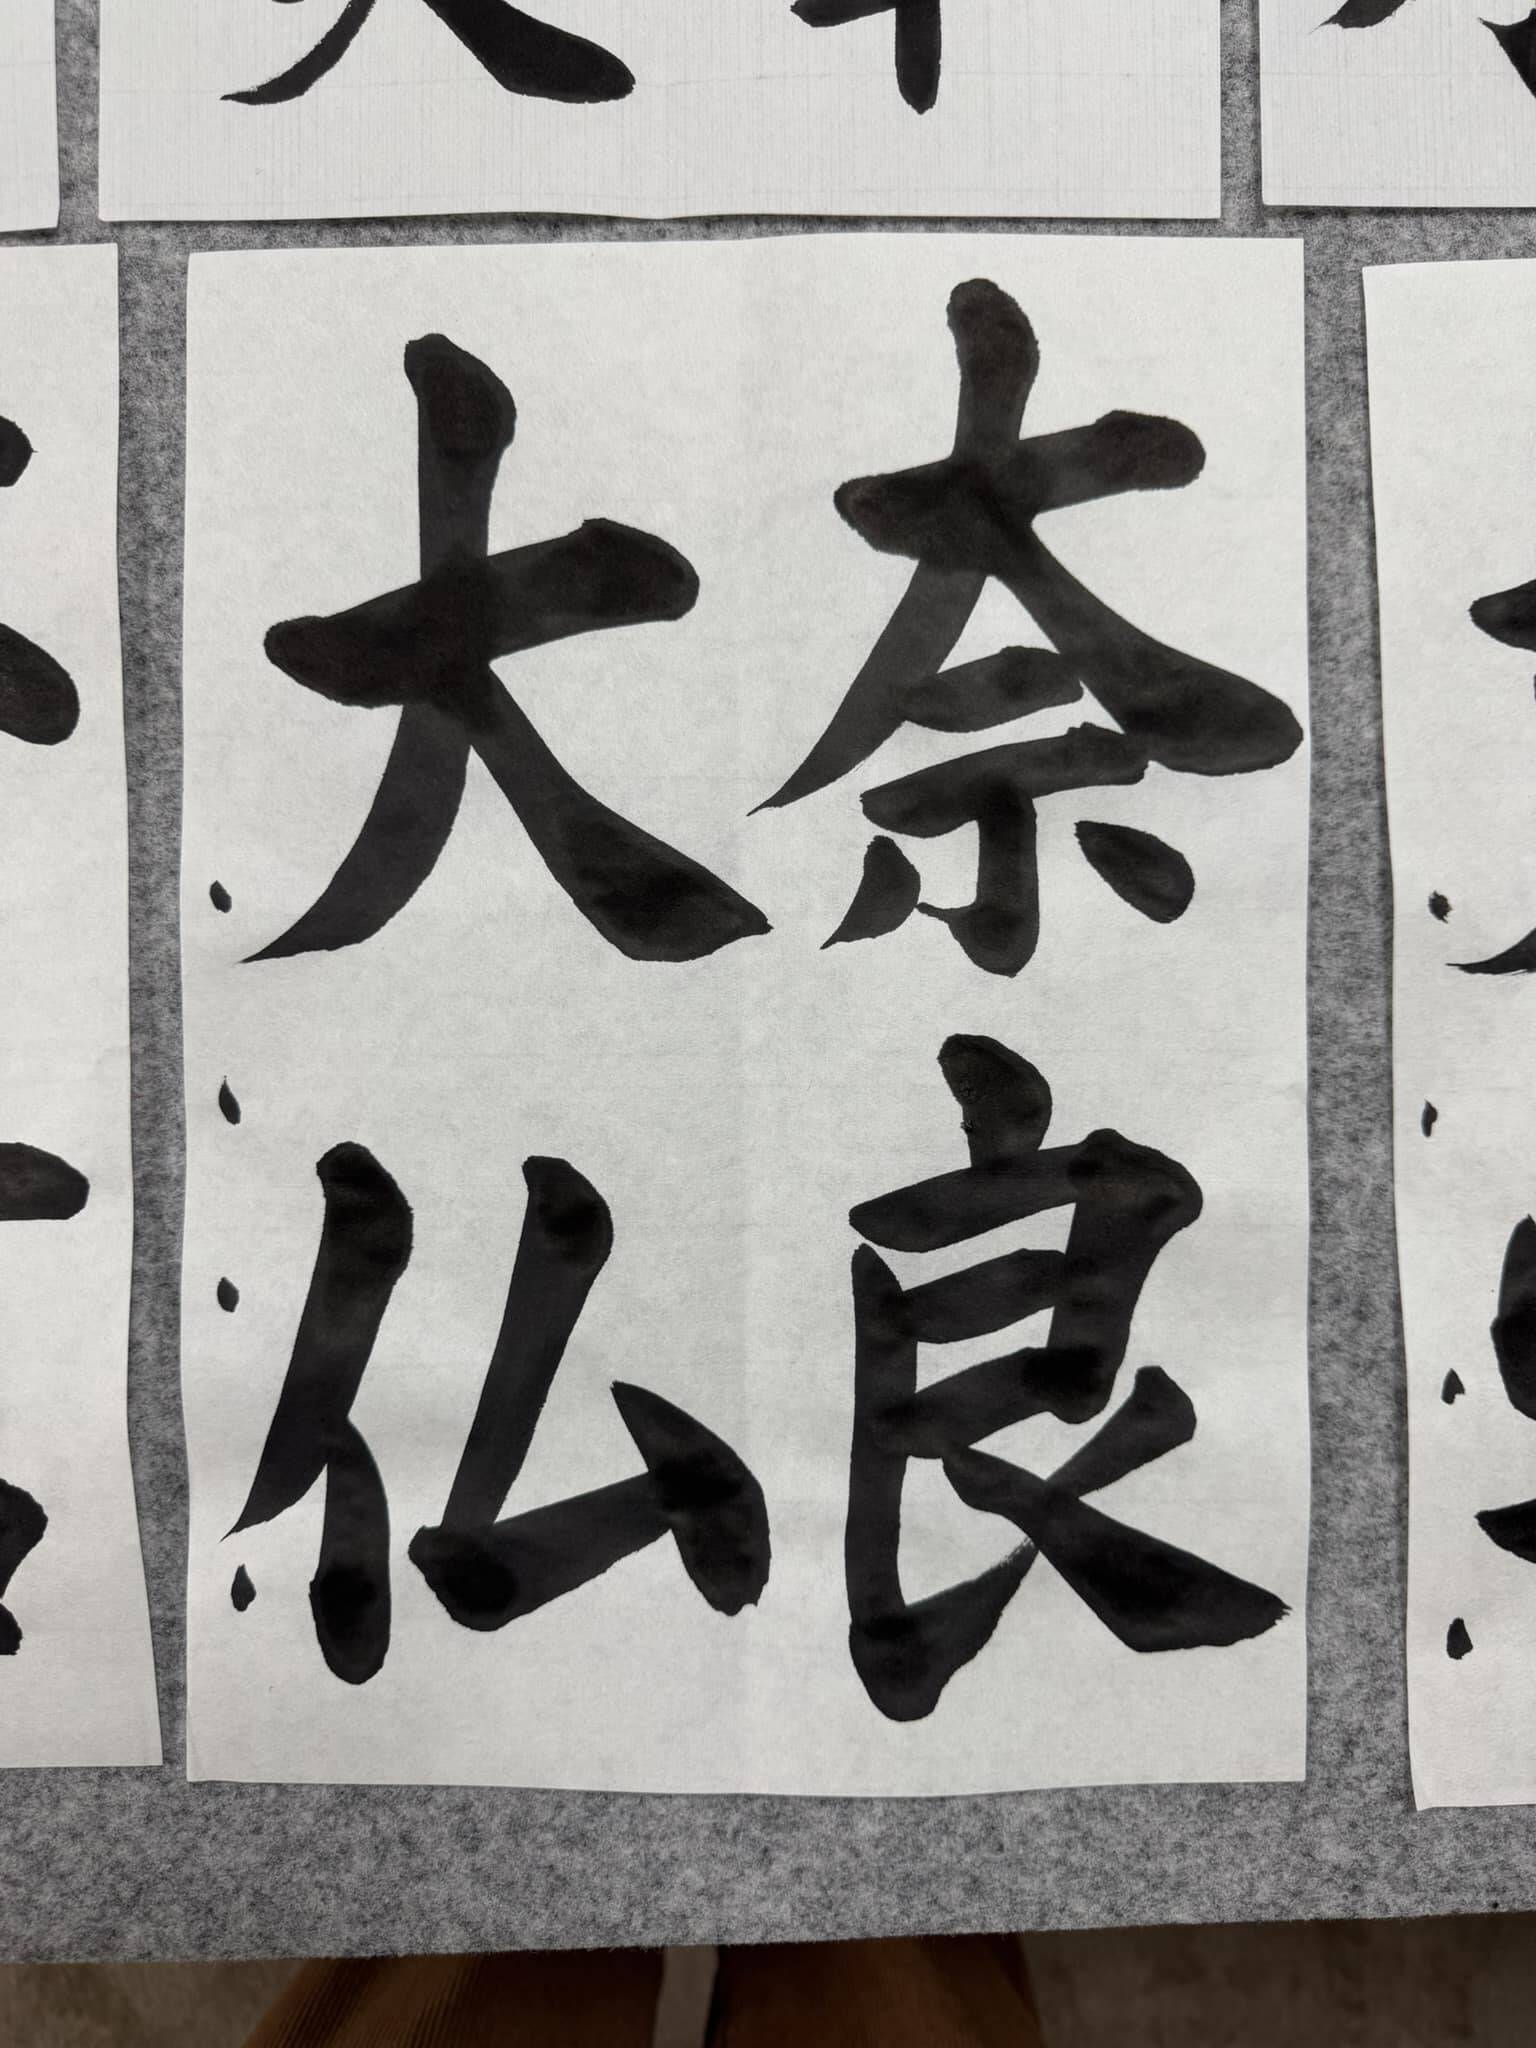 奈良
大仏